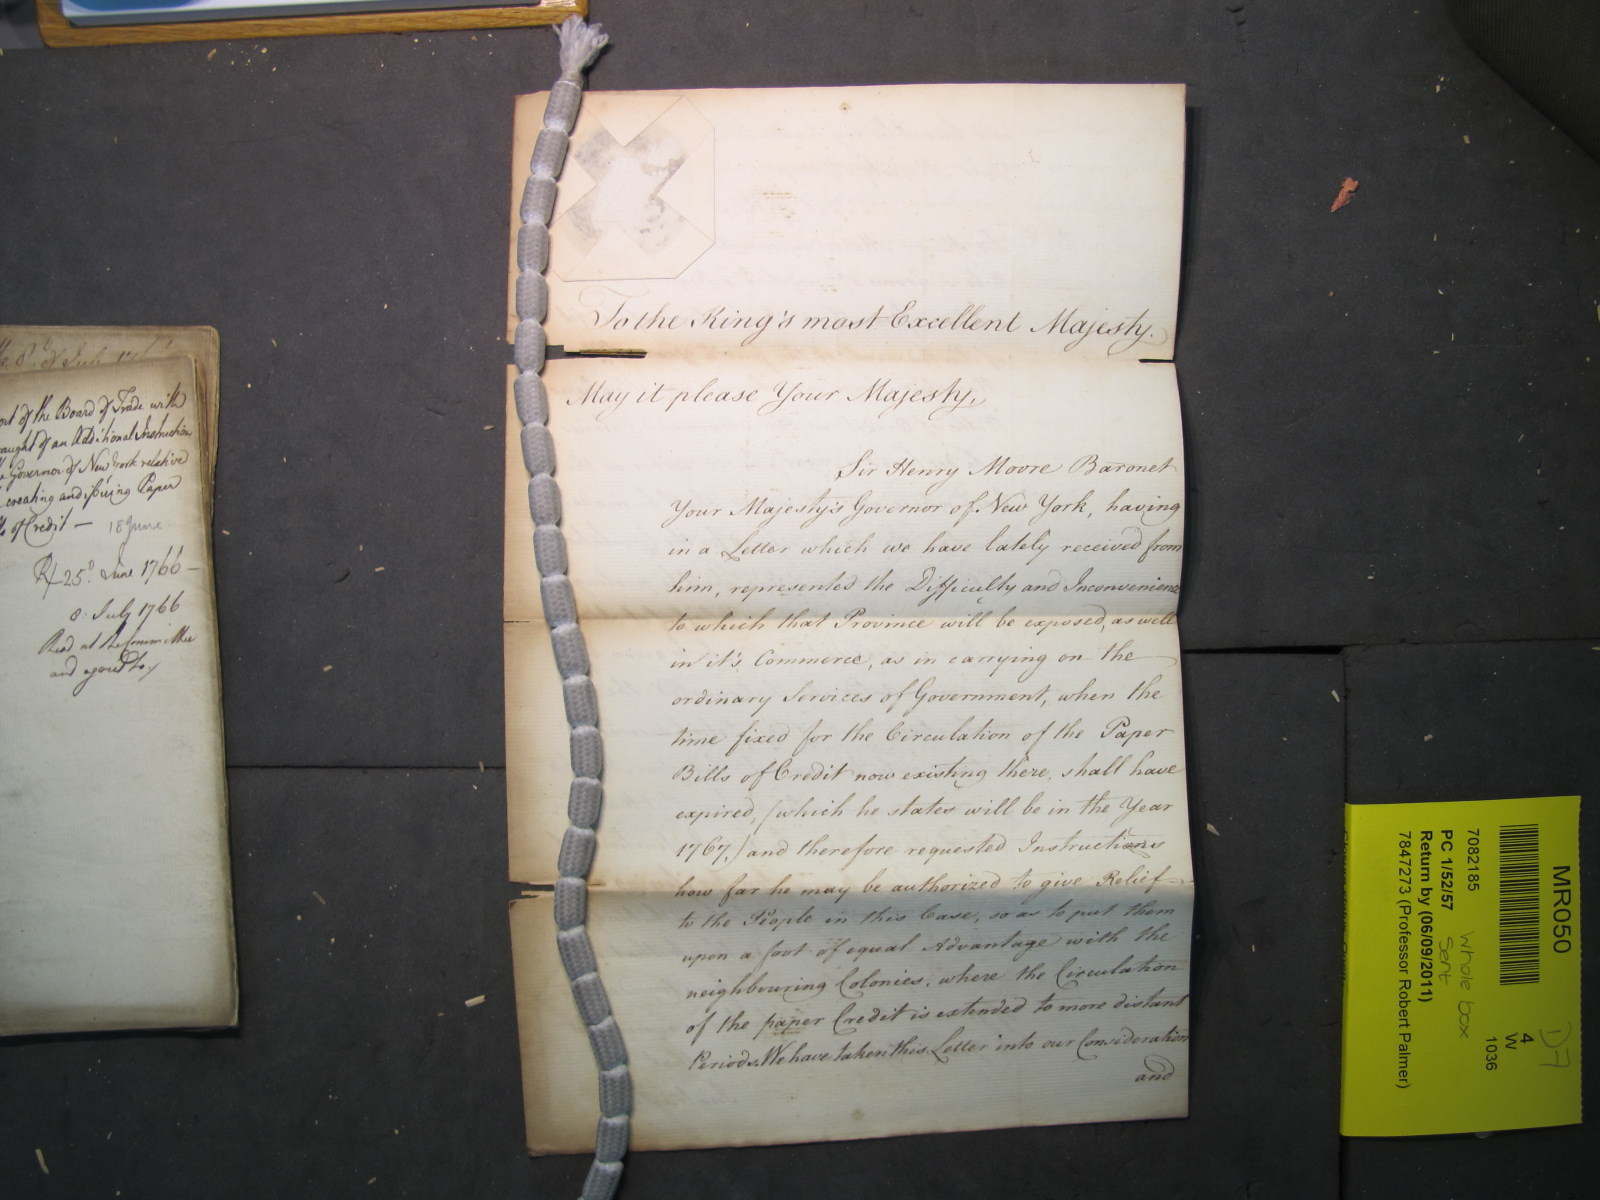 To the King's most Excellent Majesty.
May it please Your Majesty,
Sir Henry Moore Baronet
Your Majesty's Governor of New York, having
in a Letter which we have lately received from
him, represented the Difficulty and Inconvenience
to which that Province will be exposed, as well
in it's Commerce, as in carrying on the
ordinary Services of Government, when the
time fixed for the Circulation of the Paper
Bills of Credit now existing there, shall have
expired, (which he states will be in the Year
1767,) and therefore requested Instructions
how far he may be authorized to give Relief
to the People in this Case, so as to put them
upon a foot of equal Advantage with the
neighbouring Colonies, where the Circulation
of the paper Credit is extended to more distant
Periods. We have taken this Letter into our Consideration
and
of July
of the Board of Trade with
of an Additional Instruction
Governor of New York relative
creating and issuing Paper
of Credit — 18 June
25.^th June 1766 —
8. July 1766
Read at the Committee
and agreed to
MR050
7082185
PC 1/52/57
Return by (06/09/2011)
7847273 (Professor Robert Palmer)
whole box
sent
4
W
1036
D7